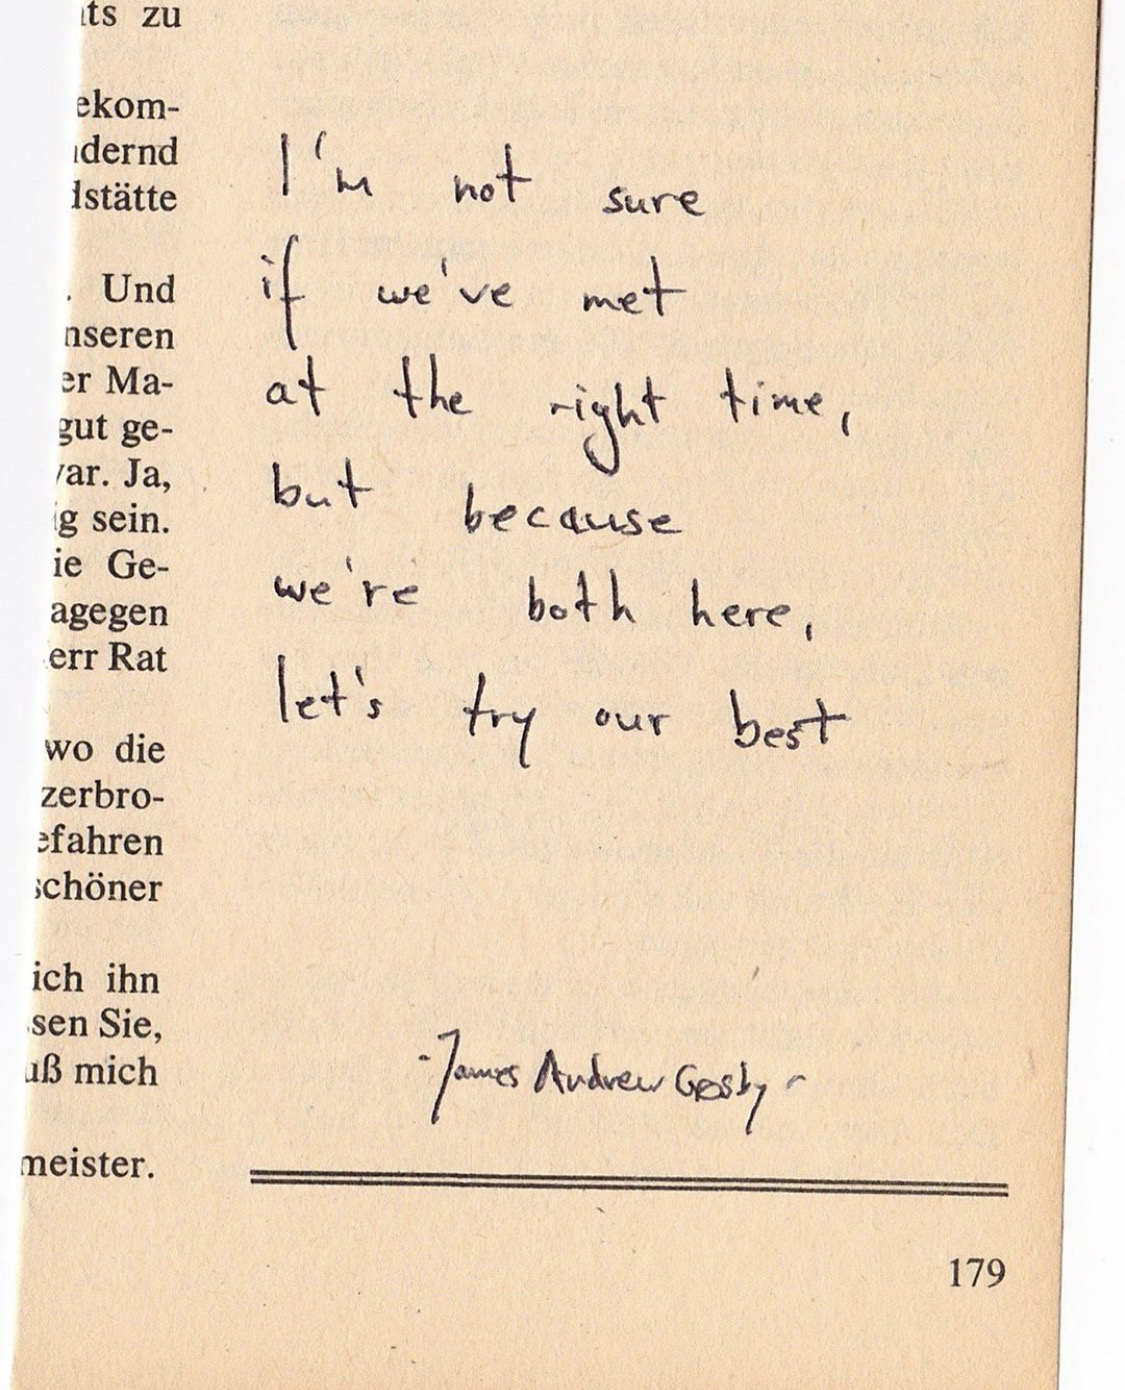 ts zu
ekom-
dernd
dstätte
. Und
nseren
er Ma-
gut ge-
var. Ja,
ig sein.
ie Ge-
agegen
err Rat
wo die
zerbro-
efahren
schöner
ich ihn
ssen Sie,
uß mich
meister.
I'm not sure
if we've met
at the right time,
but because
we're both here,
let's try our best
-James Andrew Crosby-
179